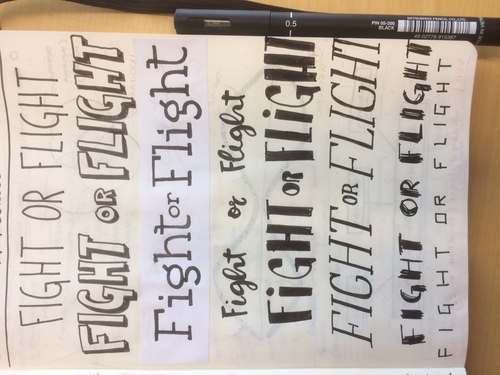 FIGHT OR FLIGHT
FIGHT OR FLIGHT
Fight or Flight
Fight or Flight
FiGHT OR FLiGHT
FIGHT OR FLIGHT
FIGHT OR FLIGHT
FIGHT OR FLIGHT
0.5
MITSUBISHI PENCIL CO., LTD.
PIN 05-200
BLACK